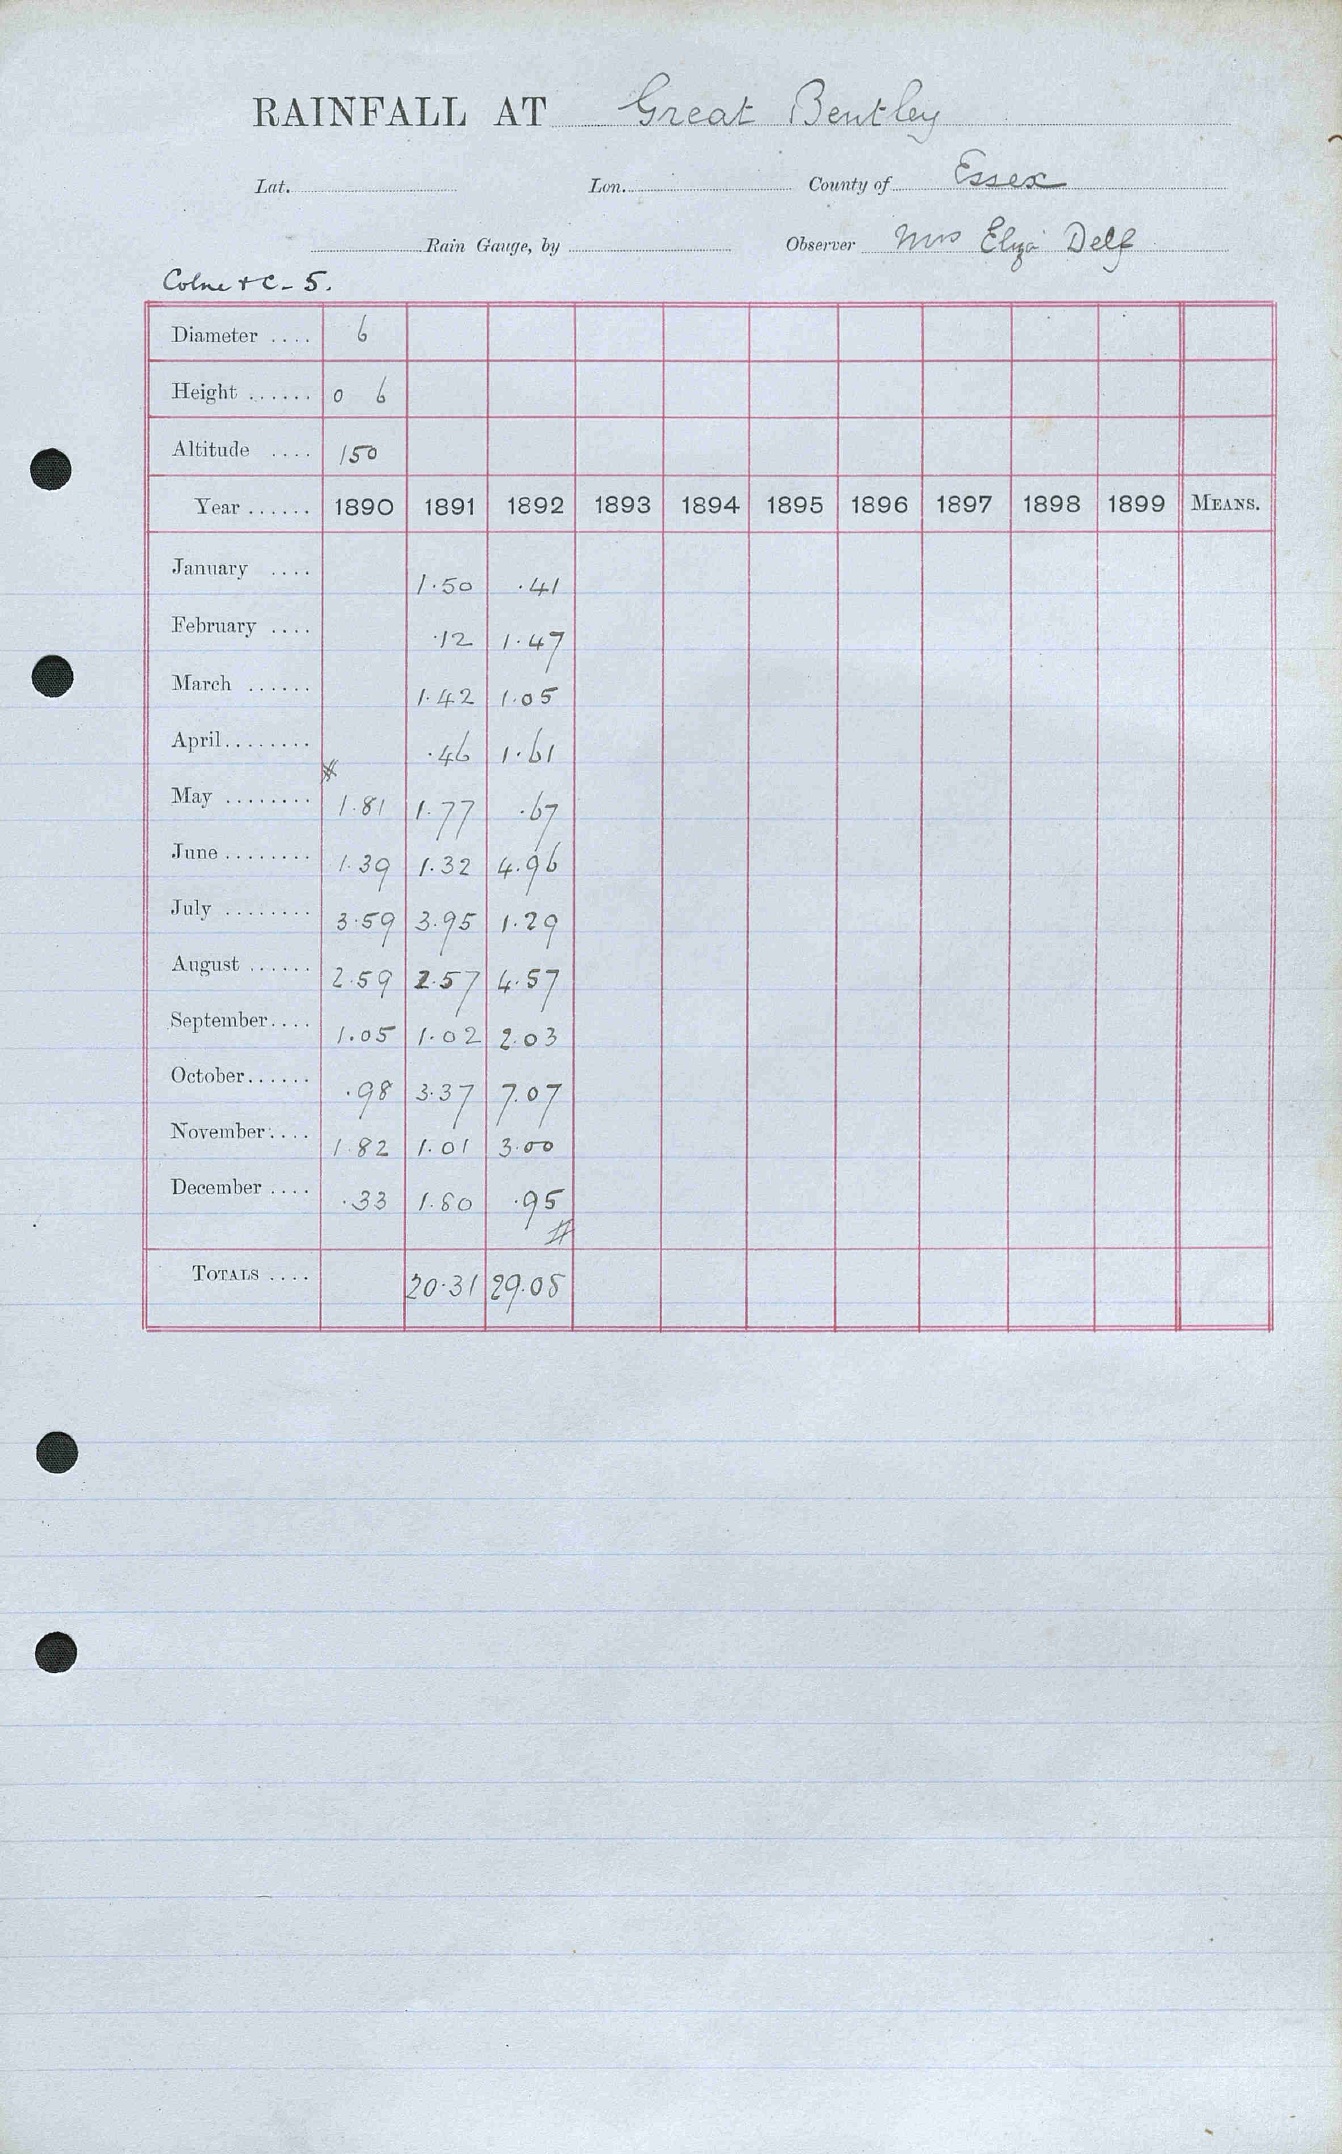 RAINFALL AT Great Bentley
Lat. Lon. County of Essex
Rain Gauge, by Observer Mrs Eliza Delf
Colne & C - 5.
Diameter .... 6
Height ...... 0 6
Altitude .... 150
Year ...... 1890 1891 1892 1893 1894 1895 1896 1897 1898 1899 MEANS.
January .... 1.50 .41
February .... .12 1.47
March ...... 1.42 1.05
April........ .46 1.61
May ........ 1.81 1.77 .67
June ........ 1.39 1.32 4.96
July ........ 3.59 3.95 1.29
August ...... 2.59 2.57 4.57
September.... 1.05 1.02 2.03
October...... .98 3.37 7.07
November.... 1.82 1.01 3.00
December .... .33 1.80 .95
TOTALS .... 20.31 29.08